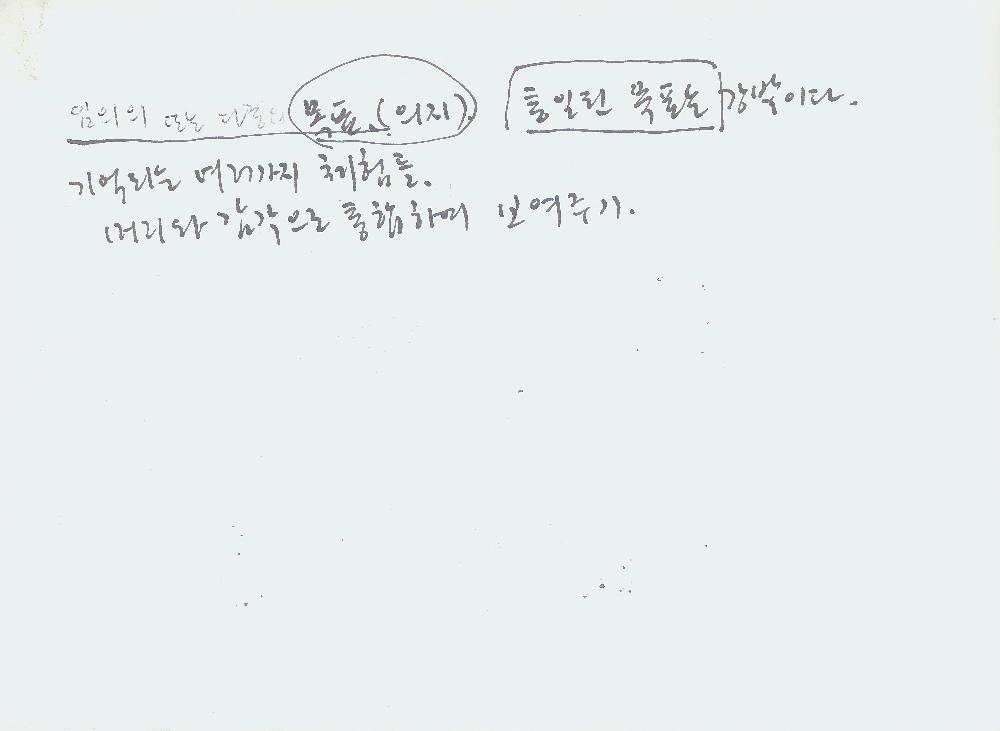 임의의 또는 다중의 목표.(의지). 통일된 목표는 강박이다.
기억되는 여러가지 체험들.
머리와 감각으로 통합하여 보여주기.